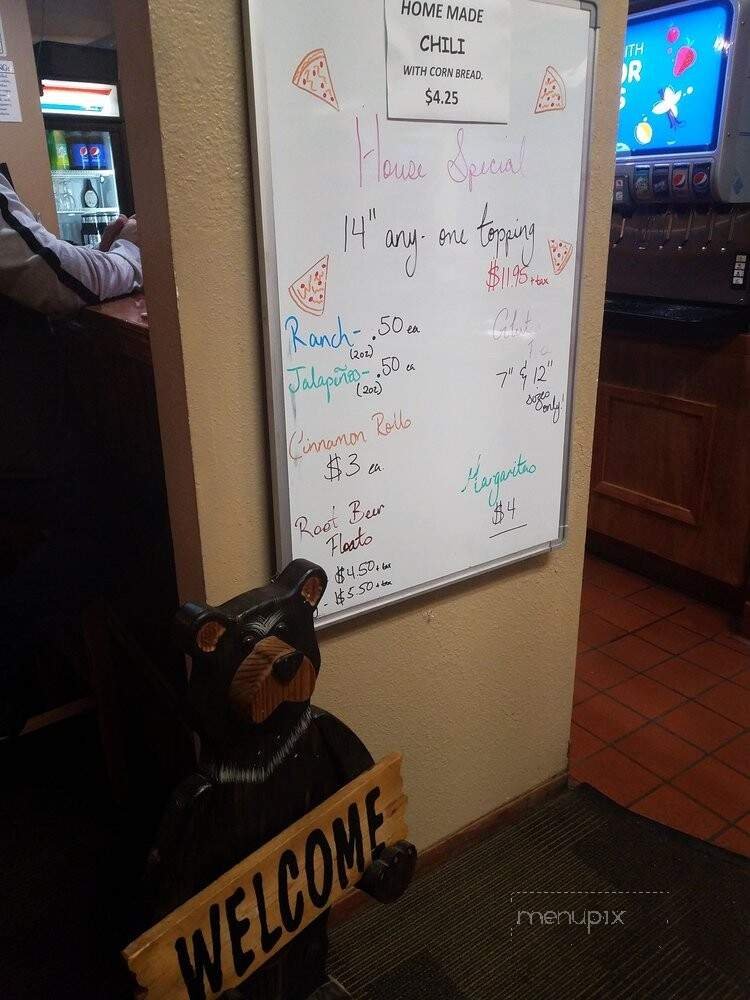 HOME MADE
CHILI
WITH CORN BREAD.
$4.25
House Special
14" any- one topping
$11.95 + tax
Ranch- .50 ea
(2oz)
Jalapeños- .50 ea
(2oz)
7" & 12"
sizes
only!
Cinnamon Rolls
$3 ea.
Margaritas
$4
Root Beer
Floats
$4.50 + tax
- $5.50 + tax
WELCOME
menupix